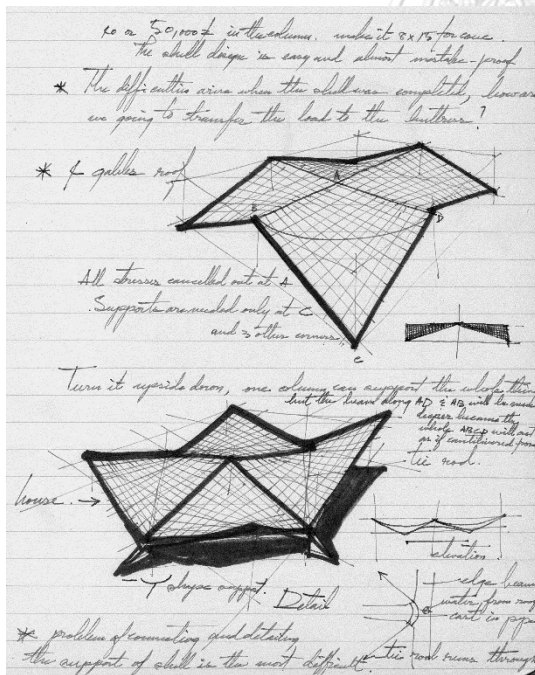 40 or 50,000# in the column. make it 8x15 for cone.
The shell design is easy and almost mistake-proof
* The difficulties arise when the shell was completed, how are
we going to transfer the load to the buttress?
* 4 gables roof
A
B
D
All stresses cancelled out at A
Supports are needed only at C
and 3 other corners.
C
Turn it upside down, one column can support the whole thing
but the beam along AD & AB will be much
deeper because the
whole ABCD will act
as if cantilevered from
tie rod.
house. →
elevation.
Y shape support.
Detail
edge beam
water from roof
cast in pipe
* problem of connecting and detailing
the support of shell is the most difficult.
tie rod runs through